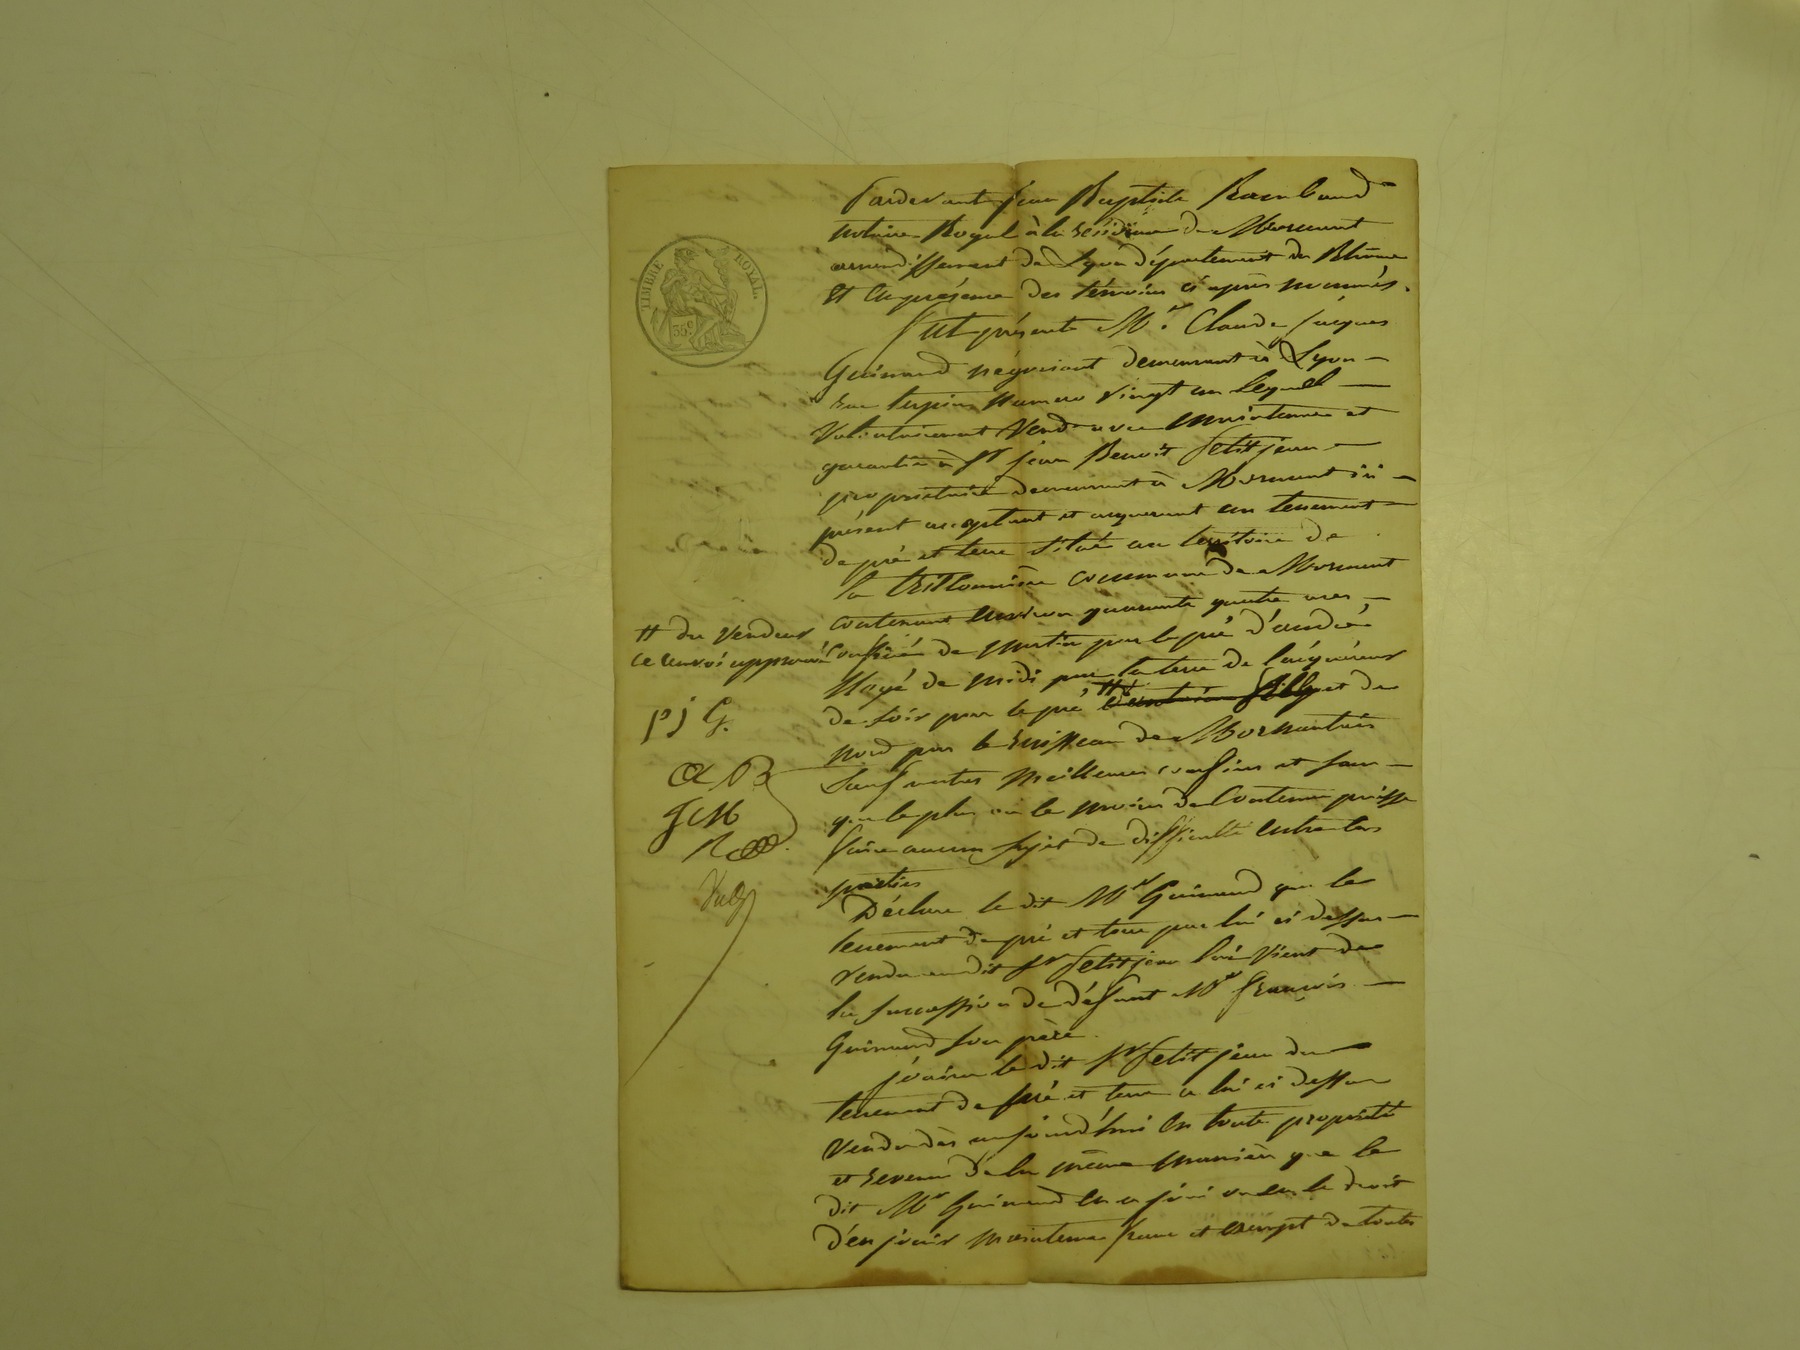 TIMBRE ROYAL.
35c
Pardevant Jean Baptiste Rambaud
notaire Royal à la résidence de Mornant
arrondissement de Lyon département du Rhône
Et en présence des témoins ci après nommés.
Fut présente Mr. Claude Jacques
Guinand négociant demeurant à Lyon
rue numero vingt un lequel
Volontairement Vend avec maintenue et
garantie à Sr jean Benoit Petitjean
propriétaire demeurant à Mornant ici
présent acceptant et acquerant un tenement
de pré et terre situé au territoire de
la commune de Mornant
contenant Environ quarante quatre ares
Confiné de matin par le pré d'andré
de midi par la terre de l'acquéreur
de soir par le pré # et de
nord par le ruisseau de Mornantais
Sauf autres meilleures confins et sans
que le plus ou le moins de Contenue puisse
faire aucun sujet de difficulté entre les
parties
# du Vendeur
ce renvoi approuvé
P J G.
JM
Déclare le dit Mr Guinand que le
tenement de pré et terre par lui ci dessus
vendu au dit Sr Petitjean lui Vient de
la succession de défunt Mr François
Guinand son père.
jouira le dit Sr Petitjean du
tenement de pré et terre a lui ci dessus
Vendu dès aujourd'hui En toute propriété
et revenu de la même manière que le
dit Mr Guinand en a joui ou eu le droit
d'en jouir maintenue franc et exempt de toutes